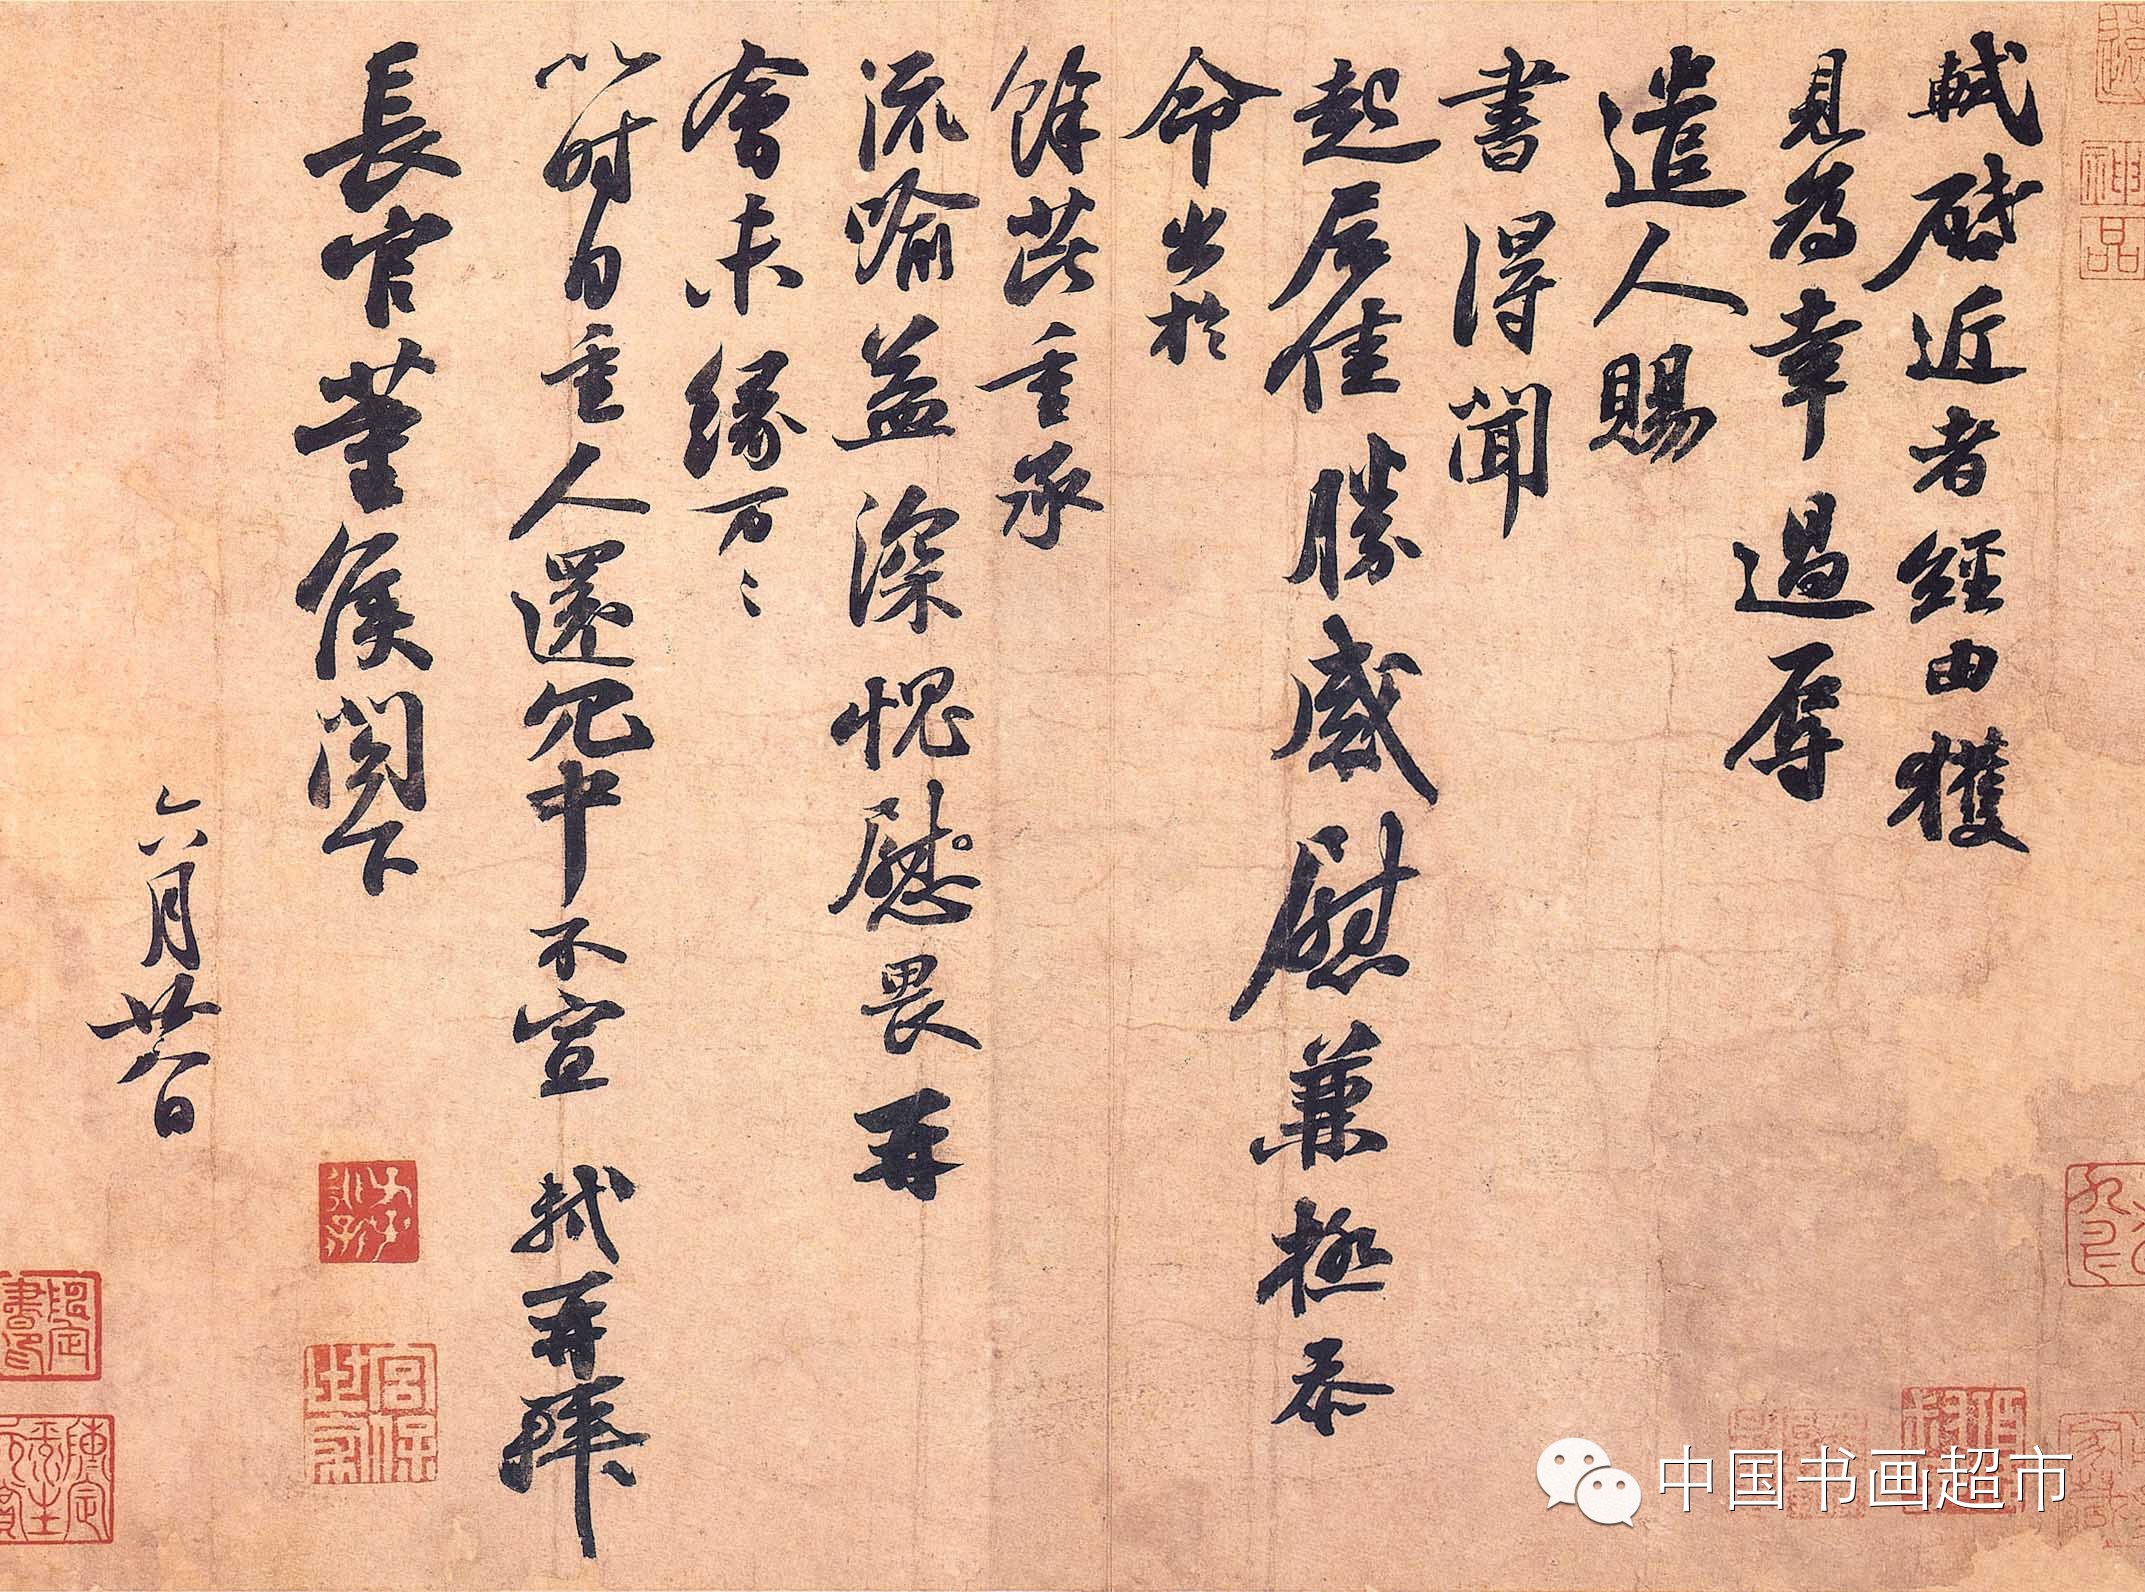 軾啟近者經由獲
見為幸過辱
遣人賜
書得聞
起居佳勝感慰兼極忝
命出於
餘芘重承
流喻益深愧慰畏再
會未緣万〻
以時自重人還冗中不宣 軾再拜
長官董侯閤下
六月廿八日
神品
宮保世家
中国书画超市